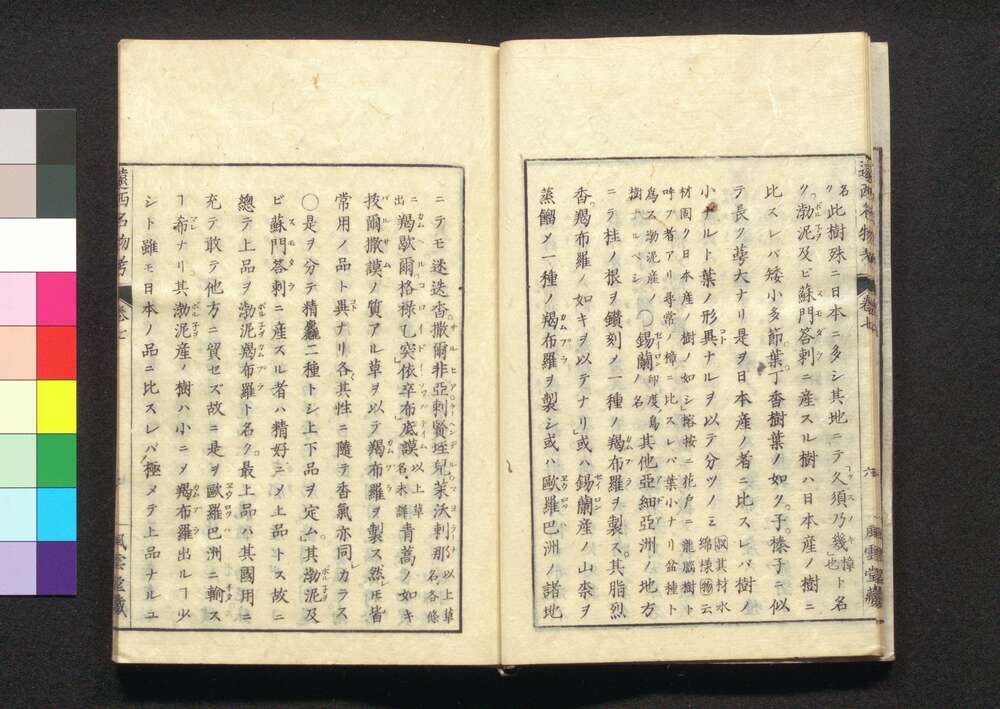 遠西名物考 卷七 六 風雲堂藏
名ク此樹殊ニ日本ニ多シ其地ニテ久須乃幾樟ト名
ク渤泥及ビ蘇門答剌ニ産スル樹ハ日本産ノ樹ニ
比スレバ矮小多節葉丁香樹葉ノ如ク子榛子ニ似
テ長ク蕚大ナリ是ヲ日本産ノ者ニ比スレバ樹ノ
小ナルト葉ノ形異ナルヲ以テ分ツノミ
材固ク日本産ノ樹ノ如シ榕按ニ花戸ニ龍脳樹ト
呼ブ者アリ尋常ノ樟ニ比スレバ葉小ナリ盆種ト
為ス渤泥産ノ樹ナルベシ○錫蘭印度ノ島其他亞細亞洲ノ地方
ニテ桂ノ根ヲ鑽刻メ一種ノ羯布羅ヲ製ス其脂烈
香羯布羅ノ如キヲ以テナリ或ハ錫蘭産ノ山柰ヲ
蒸餾メ一種ノ羯布羅ヲ製シ或ハ歐羅巴洲ノ諸地
ニテモ迷迭香撒爾非亞剌賢垤兒茉沃剌那以上草名各條
ニ出羯歇爾格祿乙突依卒布底謨以上草名未詳青蒿ノ如キ
抜爾撒謨ノ質アル草ヲ以テ羯布羅ヲ製ス然𪜈皆
常用ノ品ト異ナリ各其性ニ隨テ香氣亦同ジカラス
○是ヲ分テ精麤二種トシ上下品ヲ定ム其渤泥及
ビ蘇門答剌ニ産スル者ハ精好ニメ上品トス故ニ
總テ上品ヲ渤泥羯布羅ト名ク最上品ハ其國用ニ
充テ敢テ他方ニ貿セズ故ニ是ヲ歐羅巴洲ニ輸ス
ヿ希ナリ其渤泥産ノ樹ハ小ニメ羯布羅出ルヿ少
シト雖モ日本ノ品ニ比スレバ極メテ上品ナルユ
遠西名物考 卷七 風雲堂藏